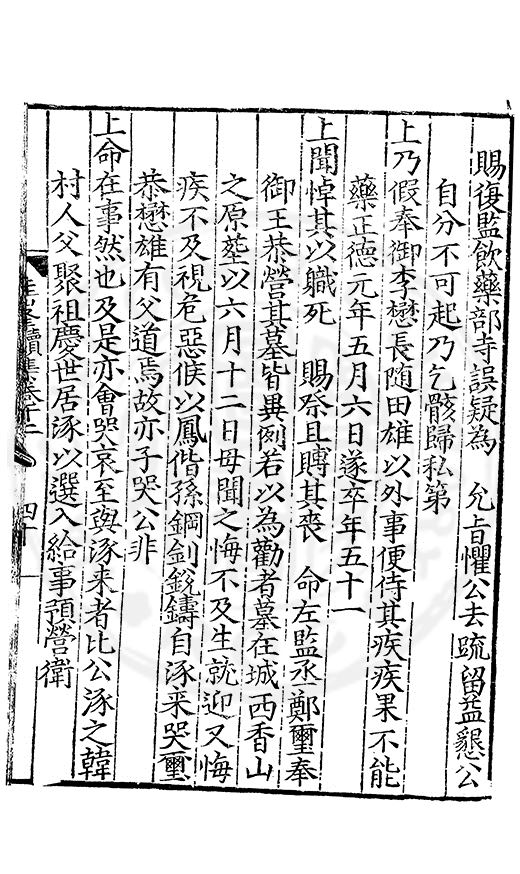 賜復監飲藥部寺誤疑為　允旨懼公去疏留益懇公
自分不可起乃乞骸歸私第
上乃假奉御李懋長随田雄以外事便侍其疾疾果不能
藥正德元年五月六日遂卒年五十一
上聞悼其以職死　賜祭且賻其喪　命左監丞鄭璽奉
御王恭營其墓皆異例若以為勸者墓在城西香山
之原塟以六月十二日毋聞之悔不及生就迎又悔
疾不及視危惡俟以鳳偕孫鋼劍鋭鑄自涿来哭璽
恭懋雄有父道焉故亦子哭公非
上命在事然也及是亦會哭哀至與涿来者比公涿之韓
村人父聚祖慶世居涿以選入給事預營衛
圭峯續集卷十二　四十一